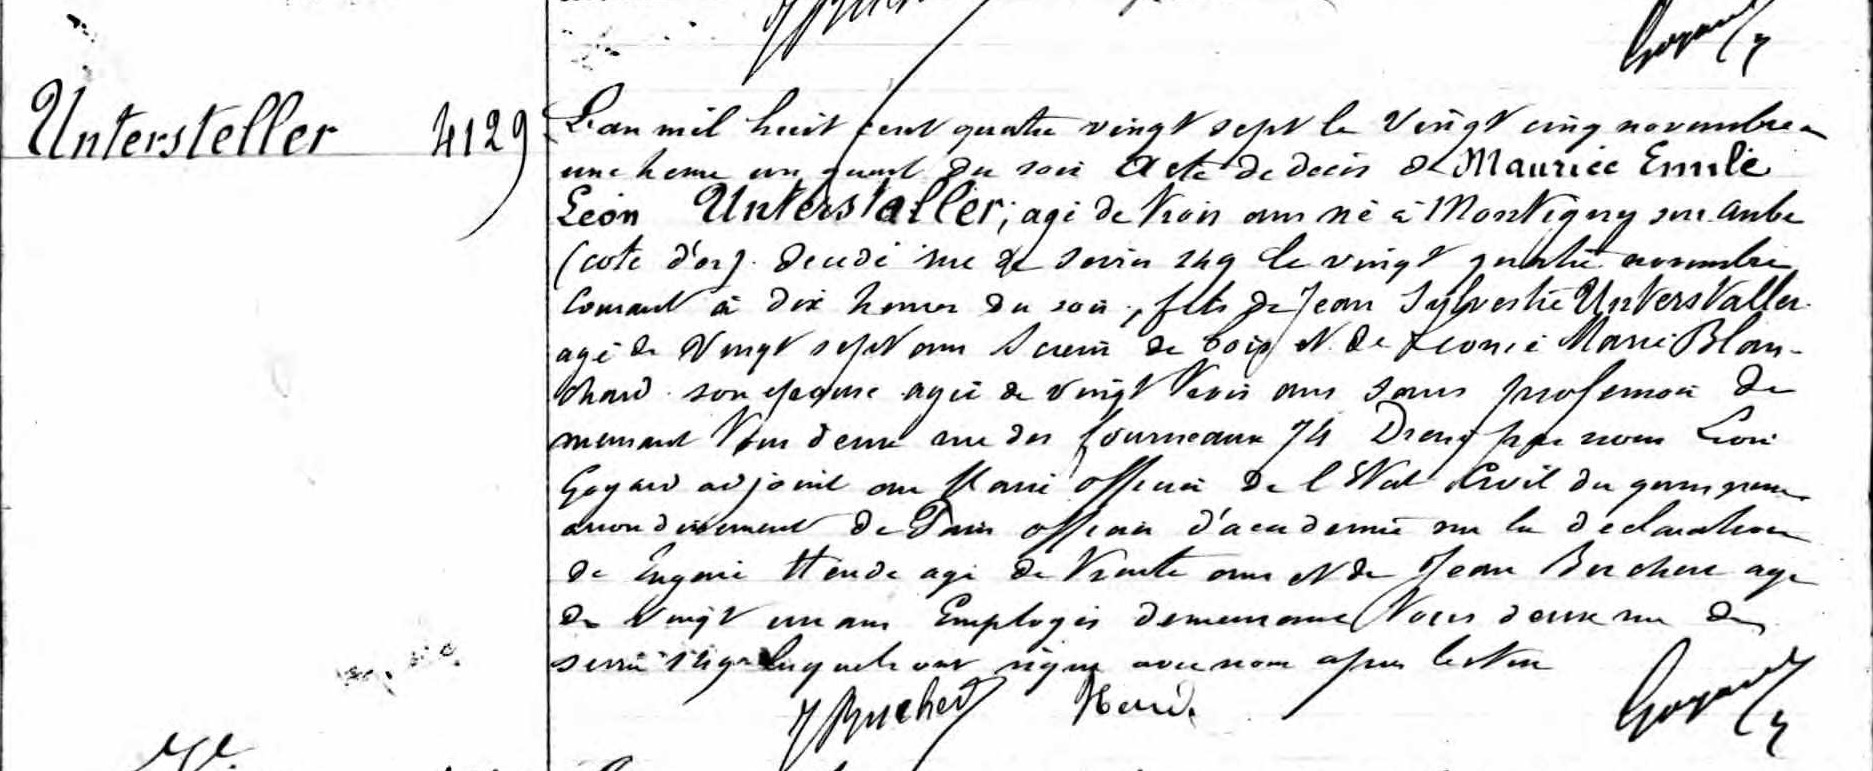 Untersteller 4129
L'an mil huit cent quatre vingt sept le vingt cinq novembre a
une heure un quart du soir Acte de décès de Maurice Emile
Léon Unterstaller, agé de trois ans né à Montigny sur Aube
(cote d'or). décédé rue de Sèvres 149 le vingt quatre novembre
courant à dix heures du soir, fils de Jean Sylvestre Unterstaller
agé de vingt sept ans Scieur de bois et de Léonie Marie Blan-
chard son épouse agée de vingt trois ans sans profession de
meurant tous deux rue des fourneaux 74 Dressé par nous Léon
Goyard adjoint au Maire officier de l'Etat Civil du quinzième
arrondissement de Paris officier d'académie sur la déclaration
de Eugène agé de trente ans et de Jean agé
de vingt un ans Employés demeurant tous deux rue de
Sèvres 149 lesquels ont signé avec nous après lecture
Goyard